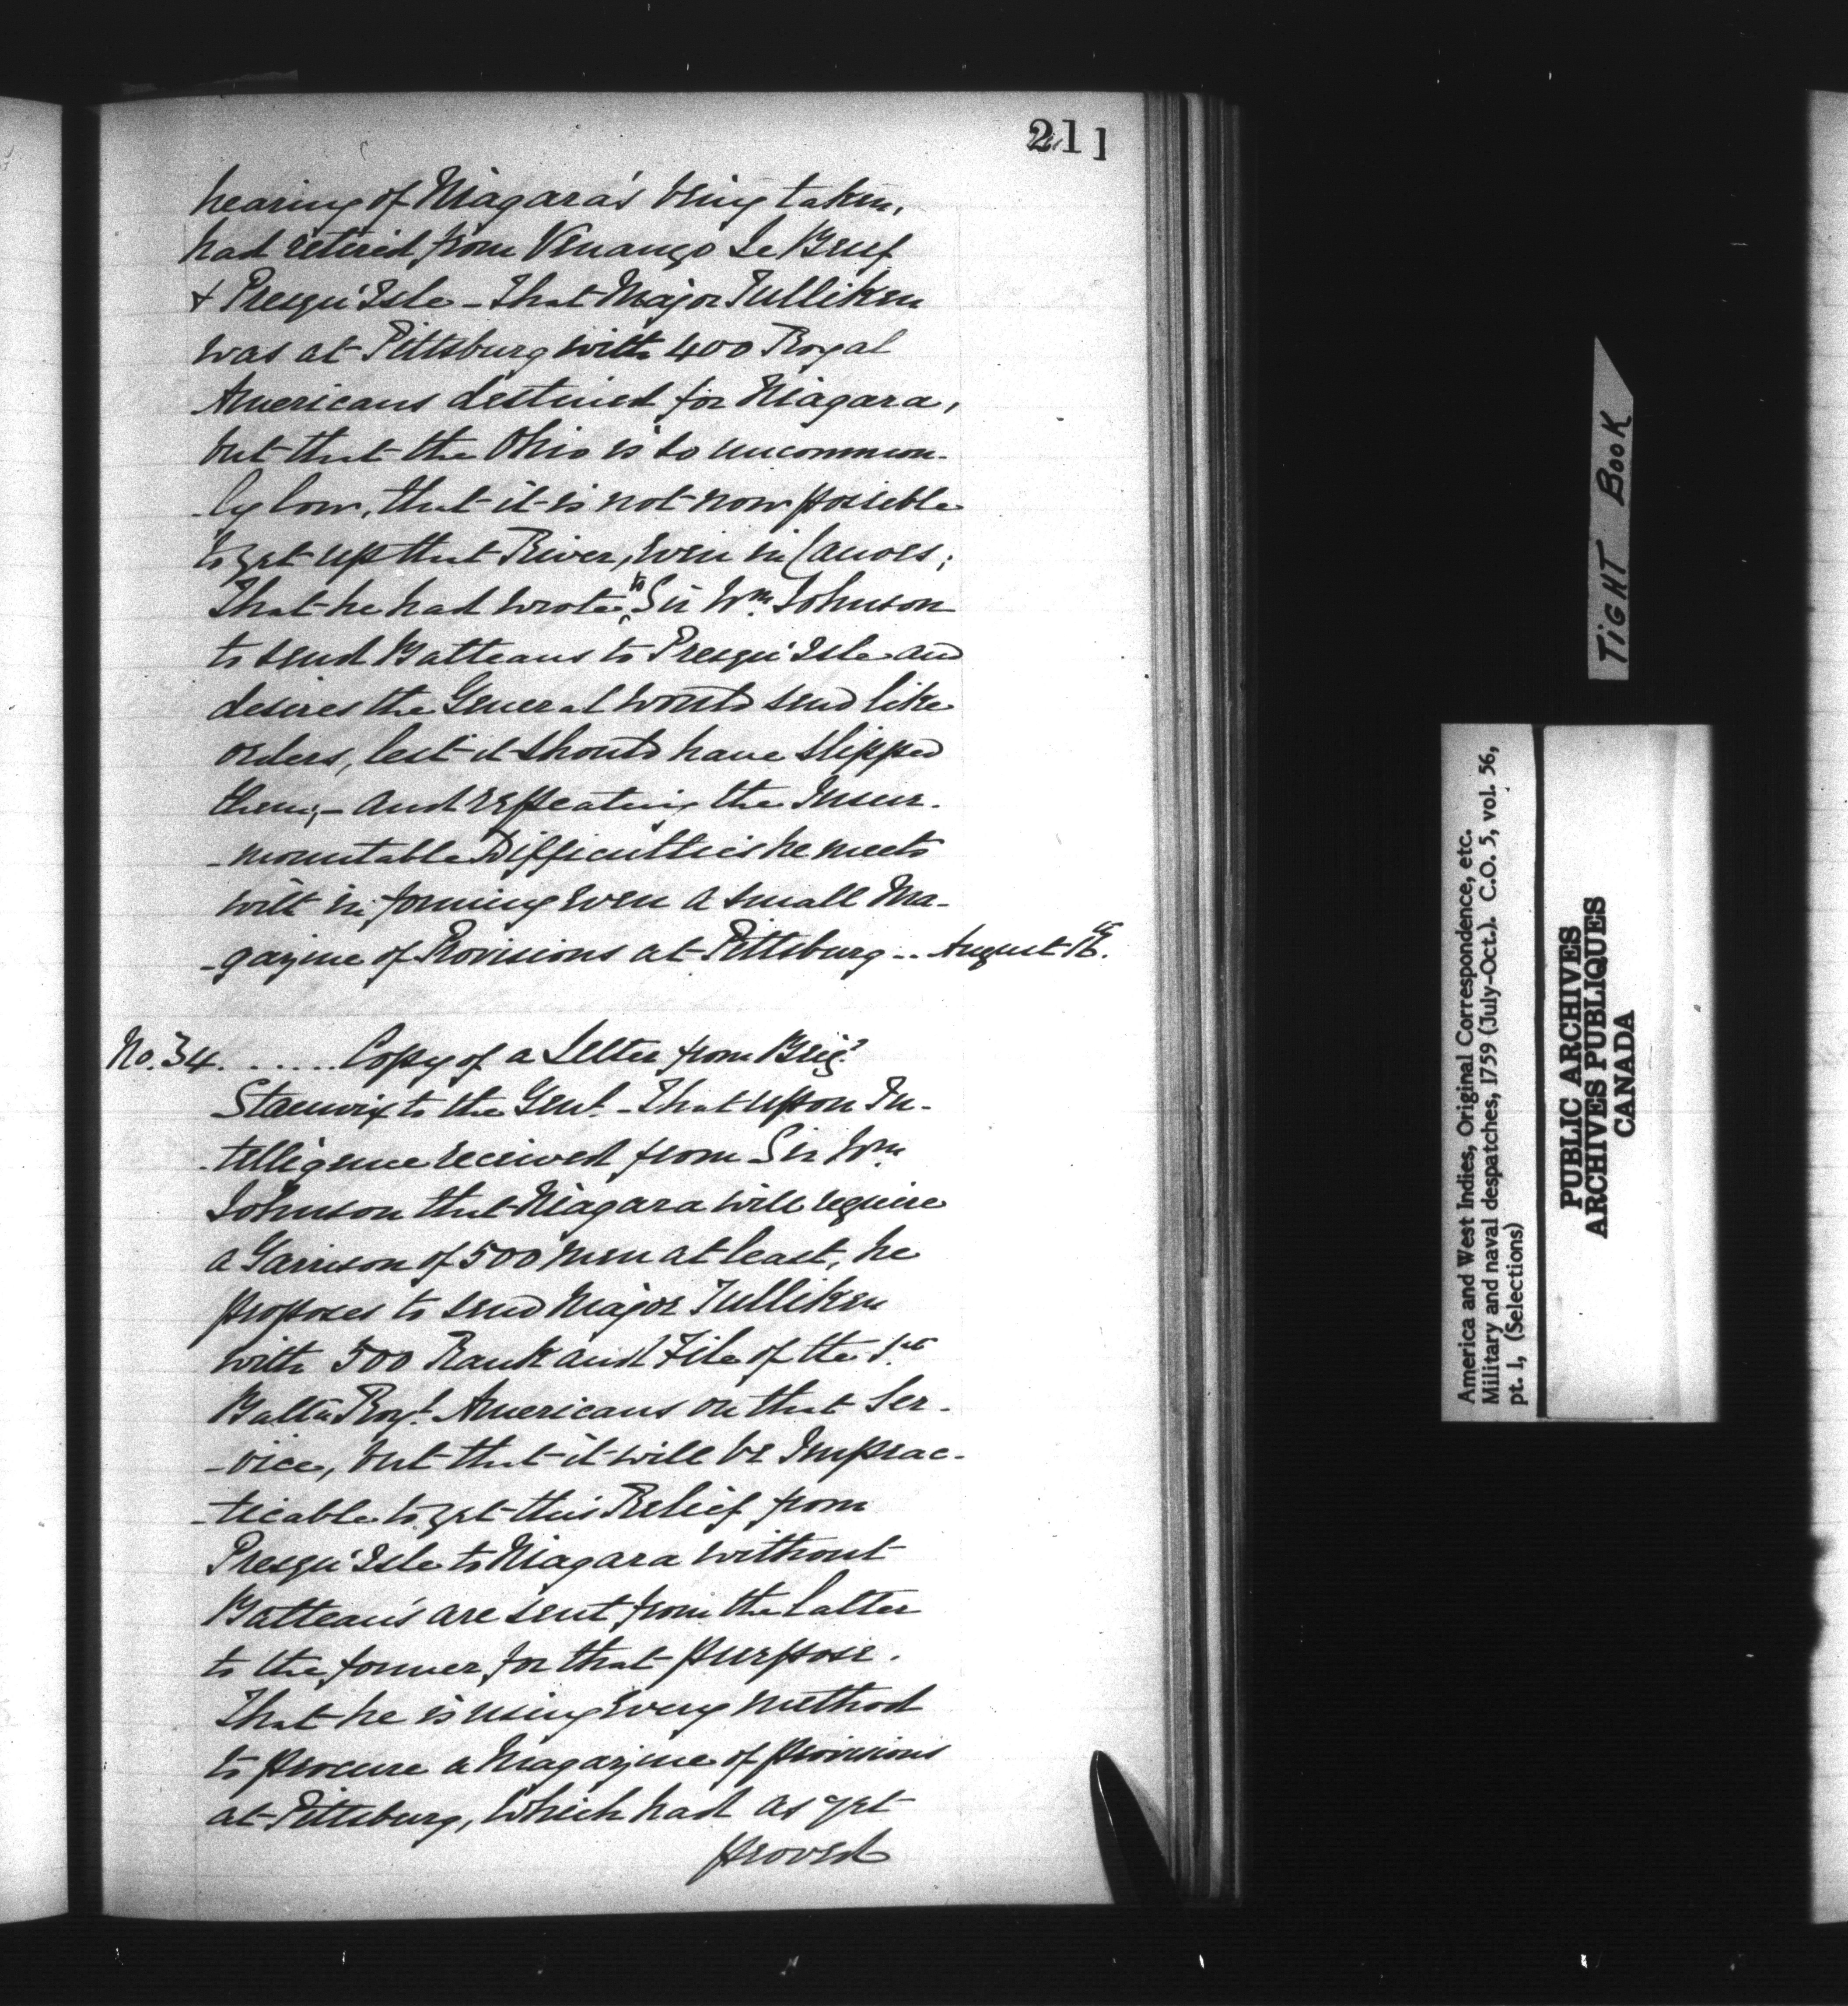 211
hearing of Niagara's being taken,
had retired from Venango Le Beuf
& Presqu'Isle - That Major Tulliken
was at Pittsburg with 400 Royal
Americans destined for Niagara,
but that the Ohio is so uncommon-
-ly low, that it is not now possible
to get up that River, even in Canoes;
That he had wrote to Sir Wm Johnson
to send Batteaus to Presqu'Isle and
desires the General would send like
orders, lest it should have slipped
them; - and repeating the Insur-
-mountable Difficulties he meets
with in forming even a small Ma-
-gazine of Provisions at Pittsburg .. August
No. 34. ...... Copy of a Letter from Brigr
Stanwix to the Genl. - That upon In-
-telligence received from Sir Wm
Johnson that Niagara will require
a Garrison of 500 men at least, he
proposes to send Major Tulliken
with 500 Rank and File of the 1st
Battn Royl. Americans on that Ser-
-vice, but that it will be Imprac-
-ticable to get this Relief from
Presqu'Isle to Niagara without
Batteau's are sent from the latter
to the former for that purpose.
That he is using every method
to procure a Magazine of provisions
at Pittsburg, which had as yet
proved
TIGHT BOOK
America and West Indies, Original Correspondence, etc.
Military and naval despatches, 1759 (July-Oct.). C.O. 5, vol. 56,
pt. 1, (Selections)
PUBLIC ARCHIVES
ARCHIVES PUBLIQUES
CANADA